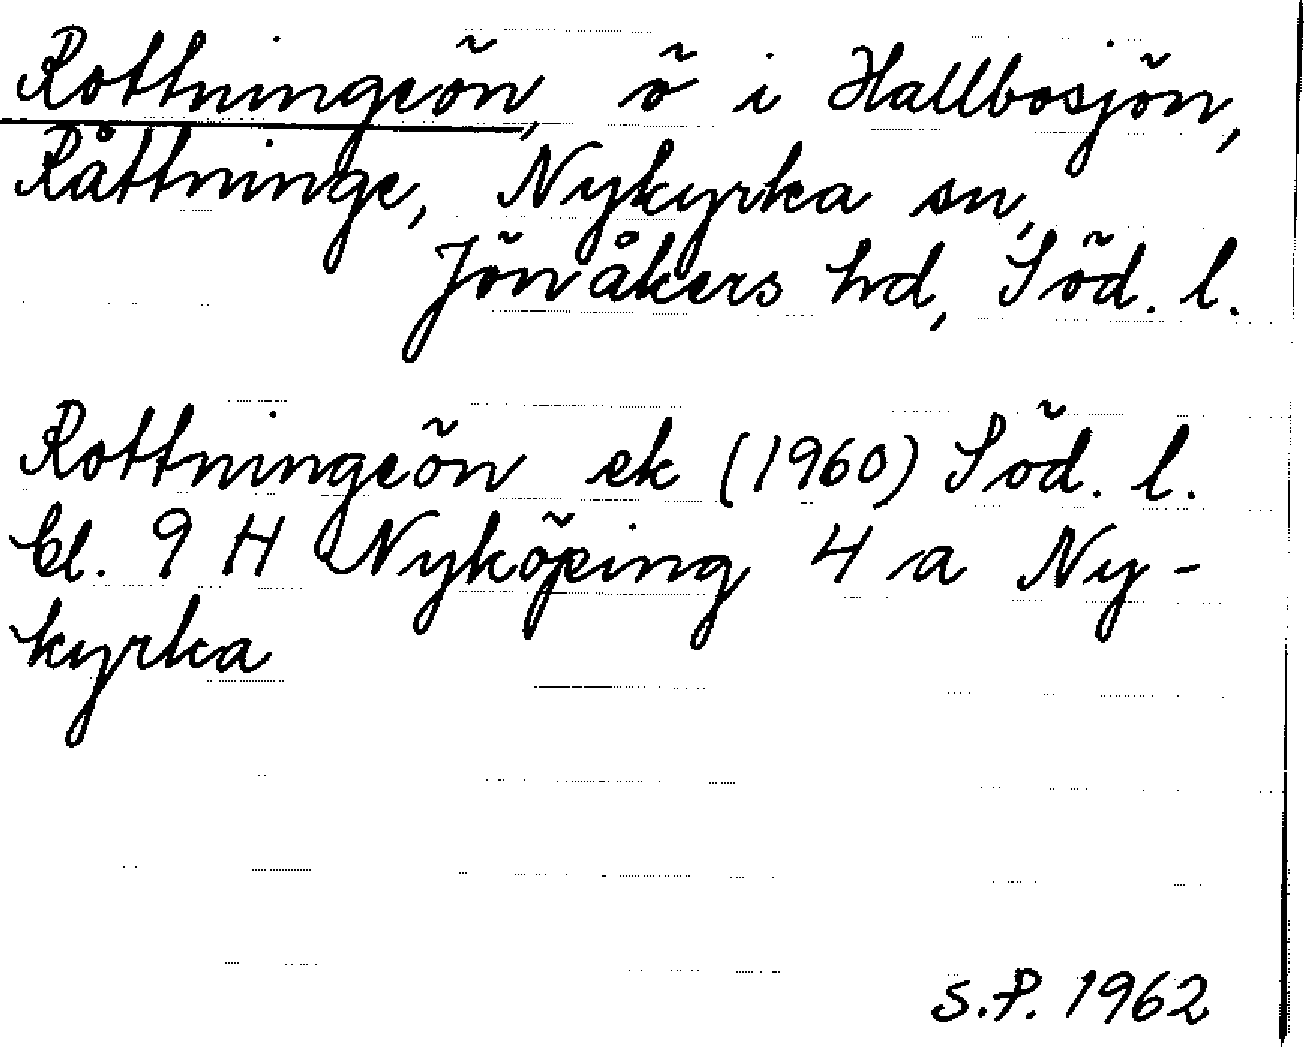 Rottningeön, ö i Hallbosjön,
Råttninge, Nykyrka sn,
Jönåkers hd, Söd. l.
Rottningeön ek (1960) Söd. l.
bl. 9 H Nyköping 4 a Ny-
kyrka
S.P. 1962